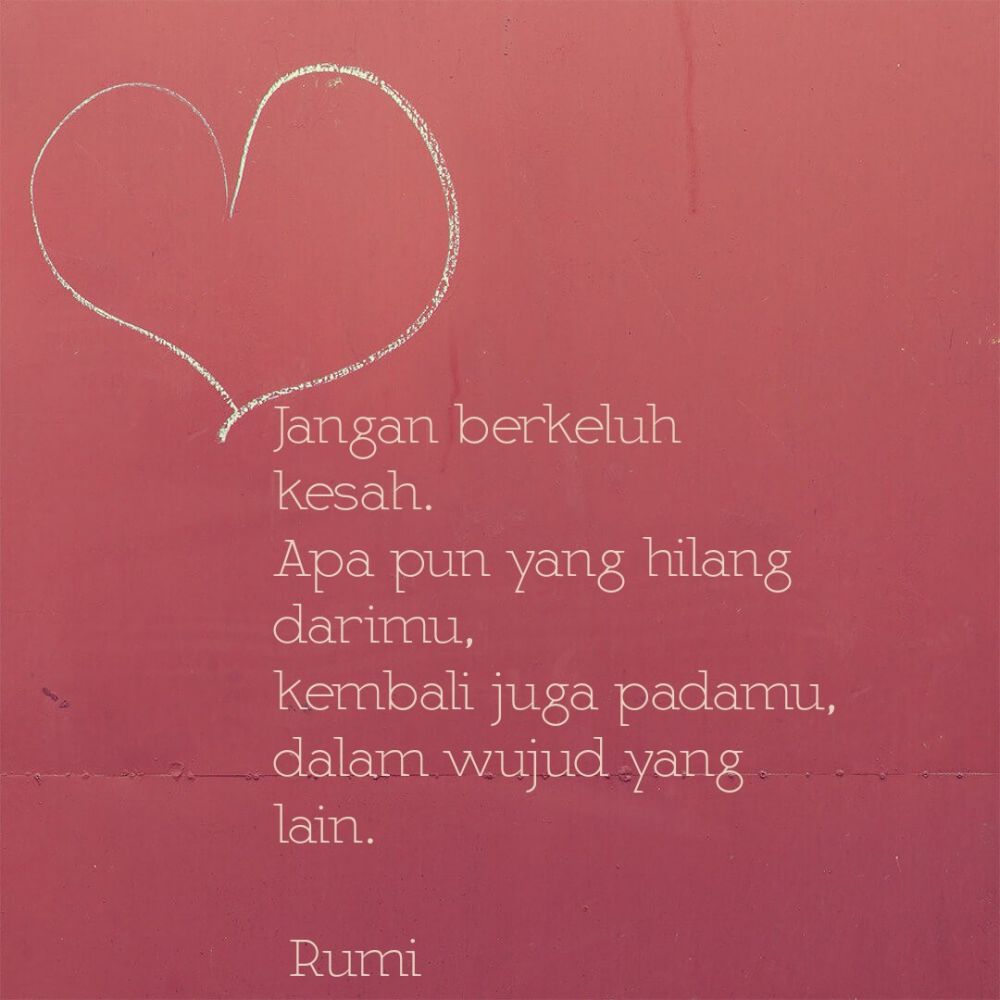 Jangan berkeluh
kesah.
Apa pun yang hilang
darimu,
kembali juga padamu,
dalam wujud yang
lain.
Rumi